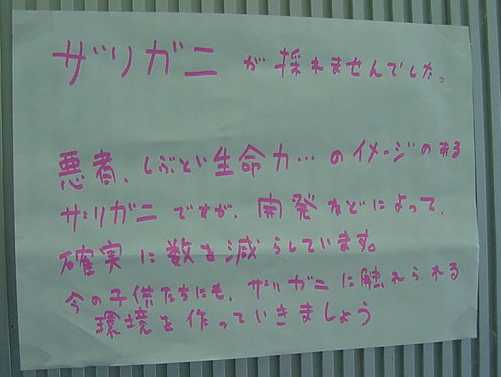 ザリガニが採れませんでした。
悪者、しぶとい生命力…のイメージのある
ザリガニですが、開発などによって、
確実に数を減らしています。
今の子供たちにも、ザリガニに触れられる
環境を作っていきましょう